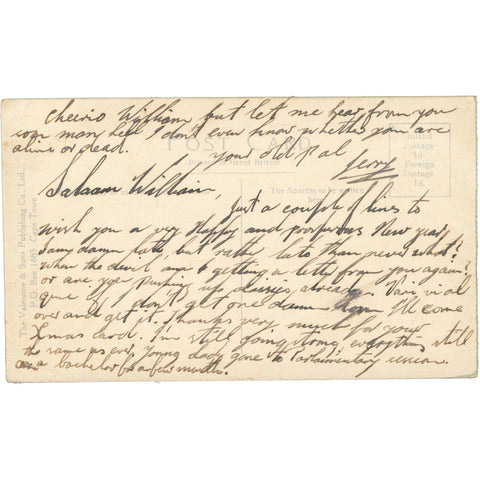 Cheerio William, but let me hear from you
soon man, hell I don't even know whether you are
alive or dead.
Your Old Pal
Gerry
POST CARD
Printed in Great Britain
The Address to be written
here
Inland
Postage
½d.
Foreign
Postage
1d.
The Valentine & Sons Publishing Co., Ltd.,
P.O. Box 1685, Cape Town
Salaam William,
Just a couple of lines to
wish you a very Happy and prosperous New year,
damn late but rather late than never what?
When the devil am I getting a letter from you again?
or are you pushing up daisies already.
If I don't get one damn I'll come
over and get it. Thanks very much for your
Xmas card. I'm still going strong, everything still
the same as ever, Young lady gone to Parliamentary session
a bachelor for a few months.